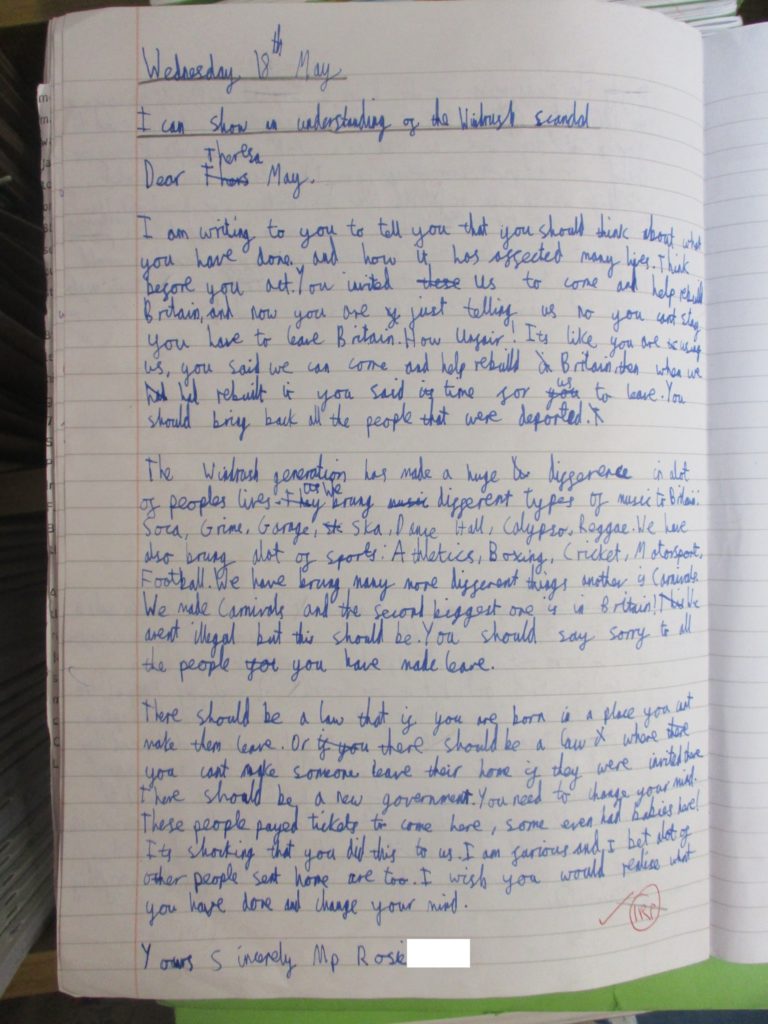 Wednesday 18th May
I can show an understanding of the Windrush scandal
Theresa
Dear Thers May.
I am writing to you to tell you that you should think about what
you have done and how it has affected many lives. Think
before you act. You invited these us to come and help rebuild
Britain, and now you are just telling us no you cant stay
you have to leave Britain. How Unfair! Its like you are using
us, you said we can come and help rebuild Britain then when we
had rebuilt it you said its time for you us to leave. You
should bring back all the people that were deported.
The Windrush generation has made a huge difference in alot
of peoples lives. They us We brung music different types of music to Britain:
Soca, Grime, Garage, Ska, Dance Hall, Calypso, Reggae. We have
also brung alot of sports: Athletics, Boxing, Cricket, Motorsport,
Football. We have brung many more different things another is Carnivals
We made Carnivals and the second biggest one is in Britain! This We
arent illegal but this should be. You should say sorry to all
the people you have made leave.
There should be a law that if you are born in a place you cant
make them leave. Or if you there should be a law where there
you cant make someone leave their home if they were invited there
There should be a new government. You need to change your mind.
These people payed tickets to come here, some even had babies here!
Its shocking that you did this to us. I am farious and I bet alot of
other people sent home are too. I wish you would realise what
you have done and change your mind.
Yours Sincerely Mp Rosie